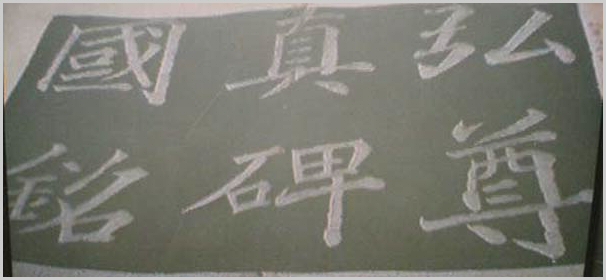 弘真國
尊碑銘